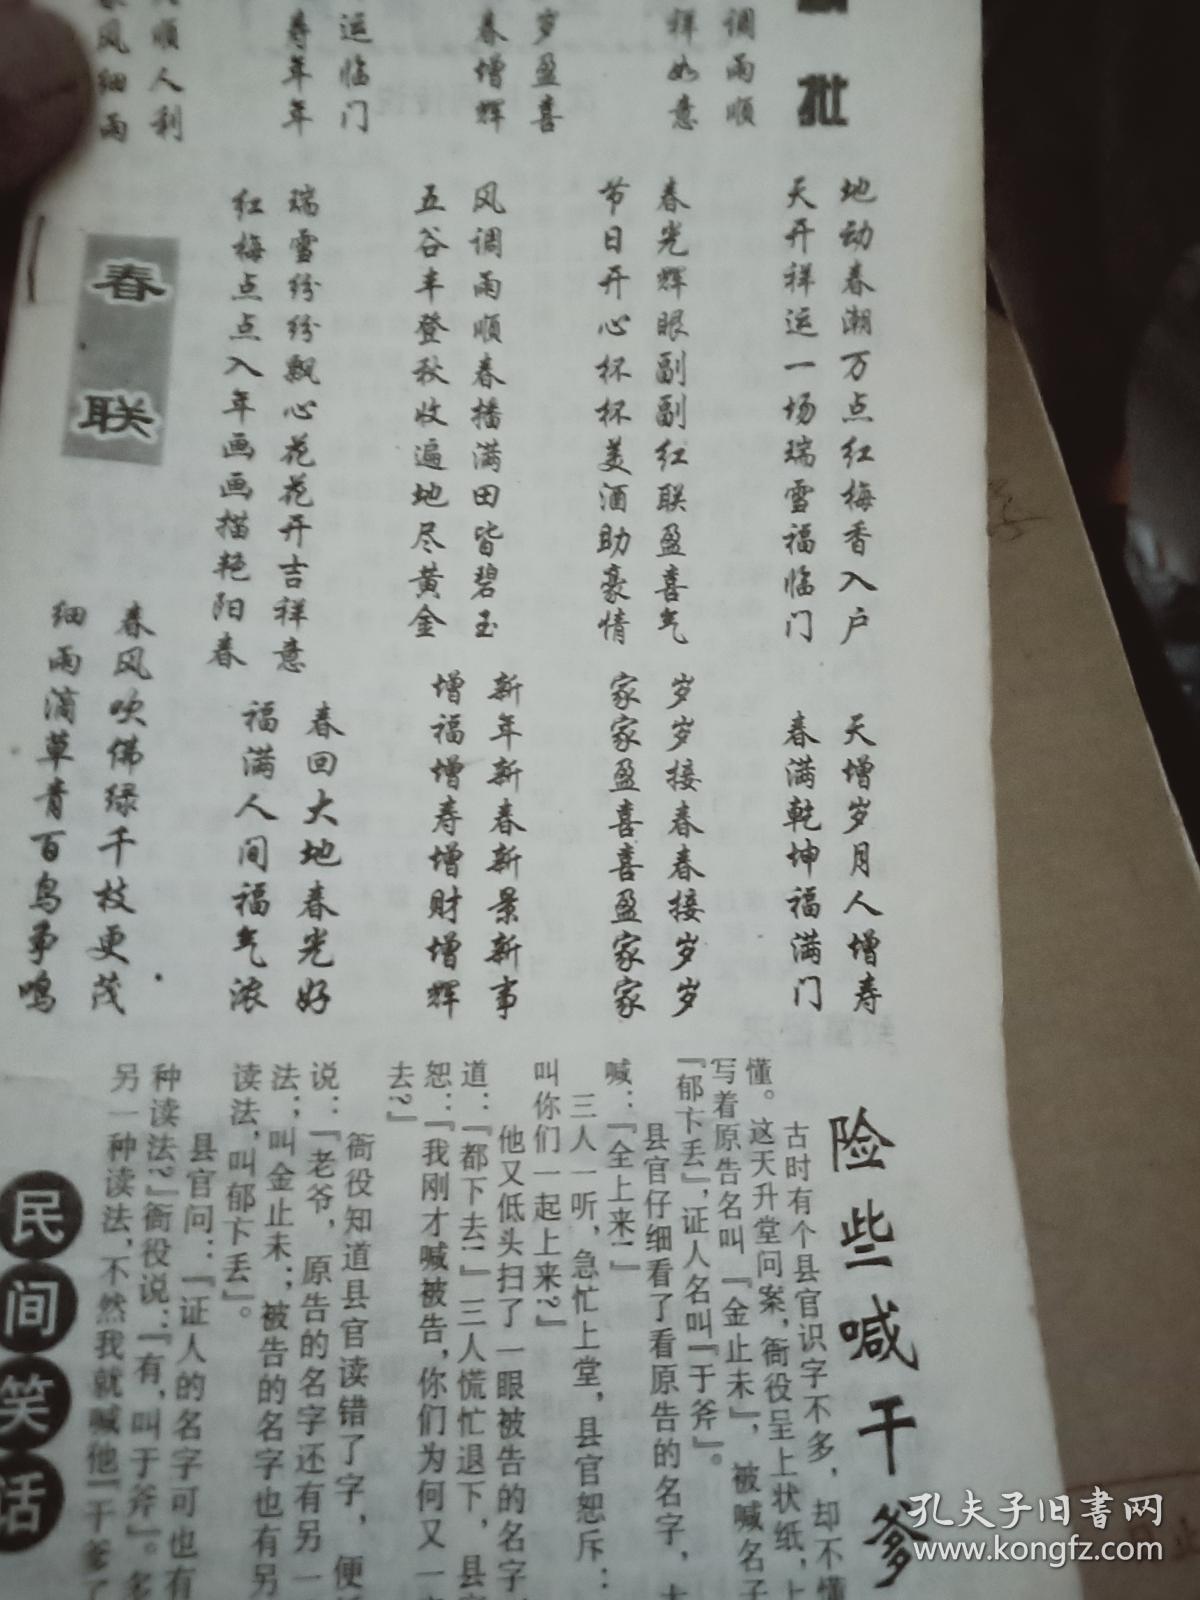 批
调雨顺
祥如意
岁盈喜
春增辉
运临门
寿年年
顺人利
风细雨
地动春潮万点红梅香入户
天开祥运一场瑞雪福临门
春光辉眼副副红联盈喜气
节日开心杯杯美酒助豪情
风调雨顺春播满田皆碧玉
五谷丰登秋收遍地尽黄金
瑞雪纷纷飘心花花开吉祥意
红梅点点入年画画描艳阳春
春联
天增岁月人增寿
春满乾坤福满门
岁岁接春春接岁岁
家家盈喜喜盈家家
新年新春新景新事
增福增寿增财增辉
春回大地春光好
福满人间福气浓
春风吹佛绿千枝更茂
细雨滴草青百鸟争鸣
险些喊干爹
古时有个县官识字不多，却不懂
懂。这天升堂问案，衙役呈上状纸，上
写着原告名叫『金止未』，被喊名子
『郁卞丢』，证人名叫『于斧』。
县官仔细看了看原告的名字，大
喊：『全上来！』
三人一听，急忙上堂，县官怒斥：
叫你们一起上来？』
他又低头扫了一眼被告的名字
道：『都下去！』三人慌忙退下，县
恕：『我刚才喊被告，你们为何又一
去？』
衙役知道县官读错了字，便
说：『老爷，原告的名字还有另一
法，叫金止未；被告的名字也有另
读法，叫郁卞丢』。
县官问：『证人的名字可也有
种读法？』衙役说：『有，叫于斧』。
另一种读法，不然我就喊他『干爹了
民间笑话
孔夫子旧书网
www.kongfz.com